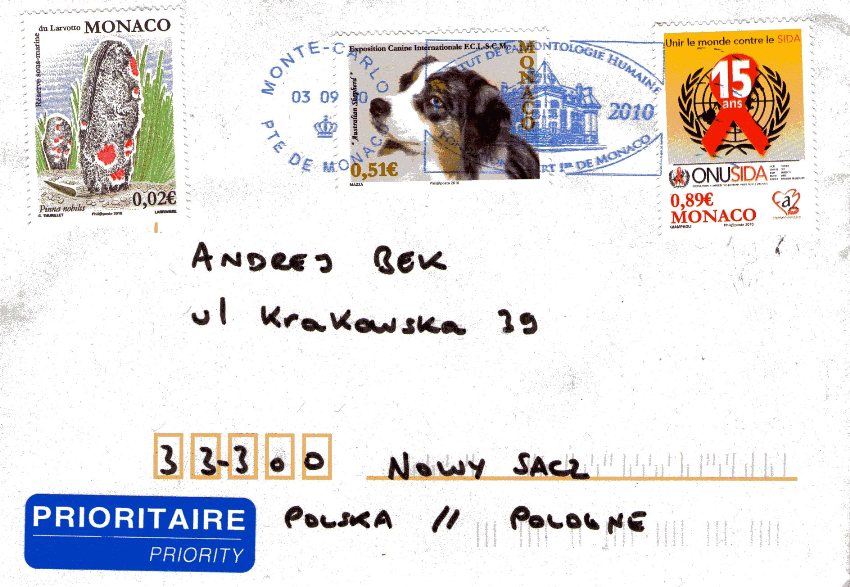 Réserve sous-marine du Larvotto
MONACO
0,02€
Pinna nobilis
Phil@poste 2010
MONTE-CARLO
03 09
PTE DE MONACO
Exposition Canine Internationale F.C.I.-S.C.M.
MONACO
"Australian Shepherd"
0,51€
MAZZA
Phil@poste 2010
INSTITUT DE PALÉONTOLOGIE HUMAINE
2010
ALBERT Ier DE MONACO
Unir le monde contre le SIDA
15
ans
ONUSIDA
0,89€
MONACO
Phil@poste 2010
ANDREJ BEK
ul Krakowska 39
33-300 NOWY SACZ
POLSKA // POLOGNE
PRIORITAIRE
PRIORITY